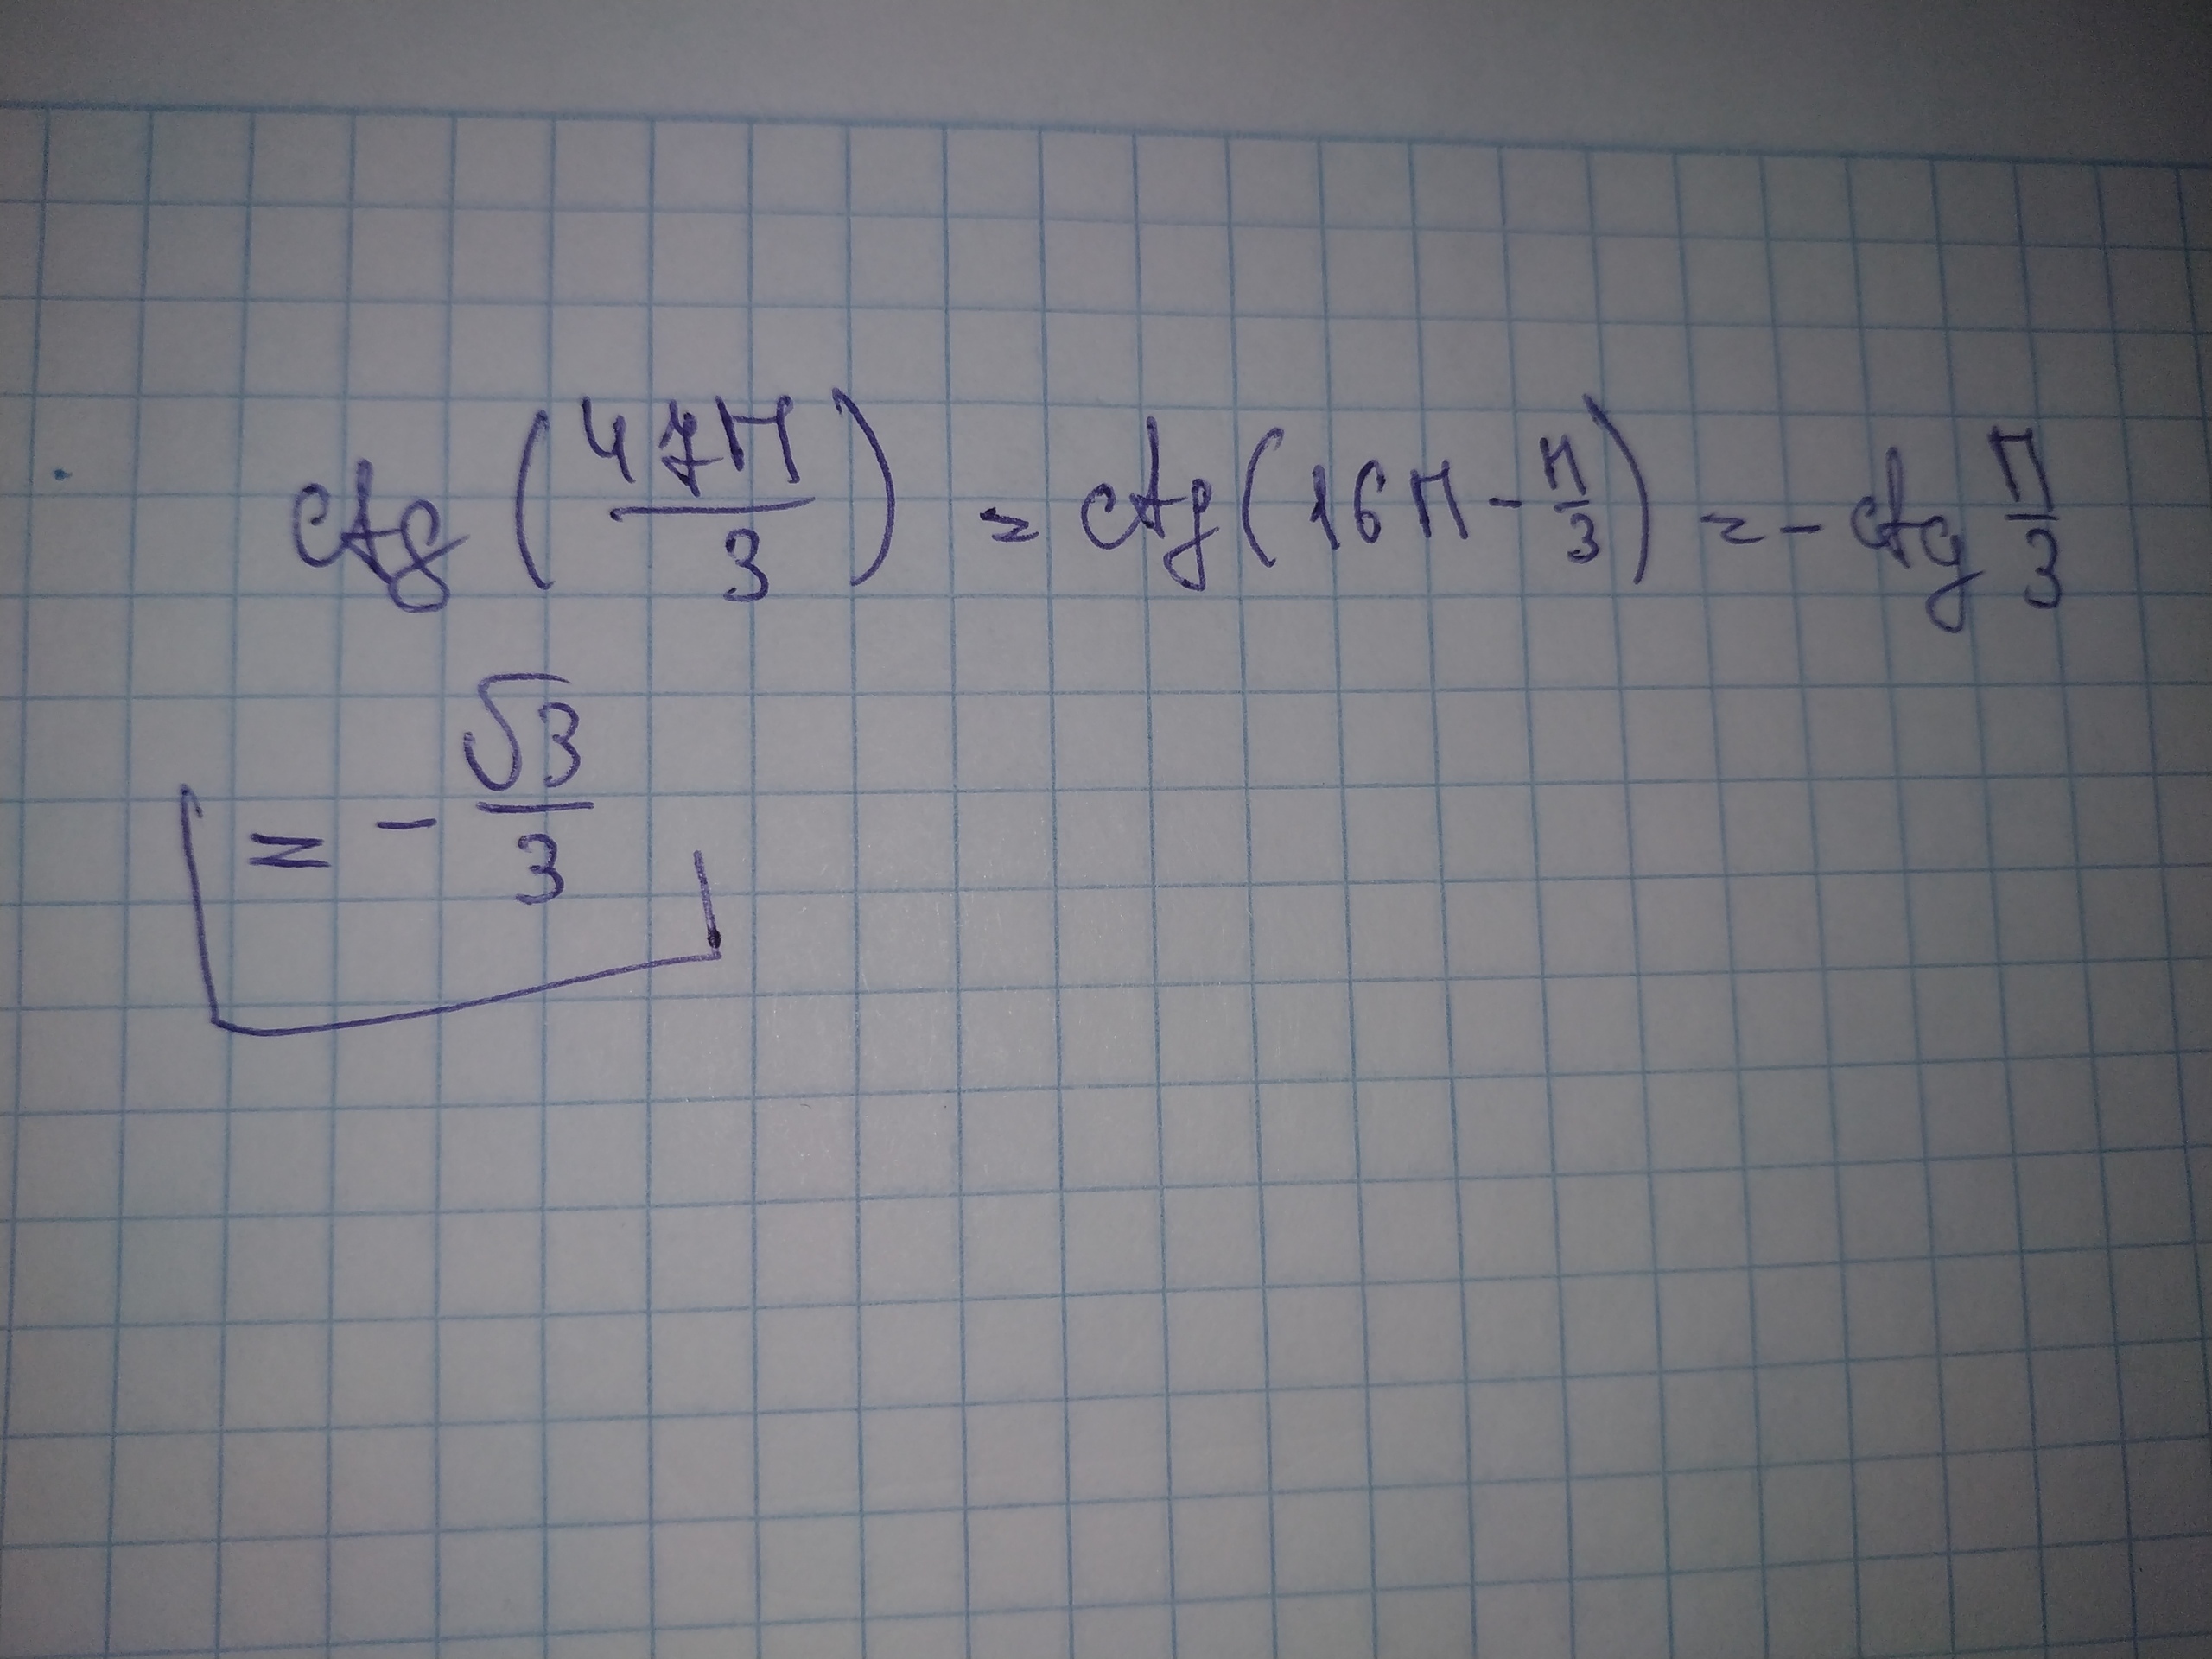 ctg (47π/3) = ctg(16π - π/3) = - ctg π/3
= - √3/3